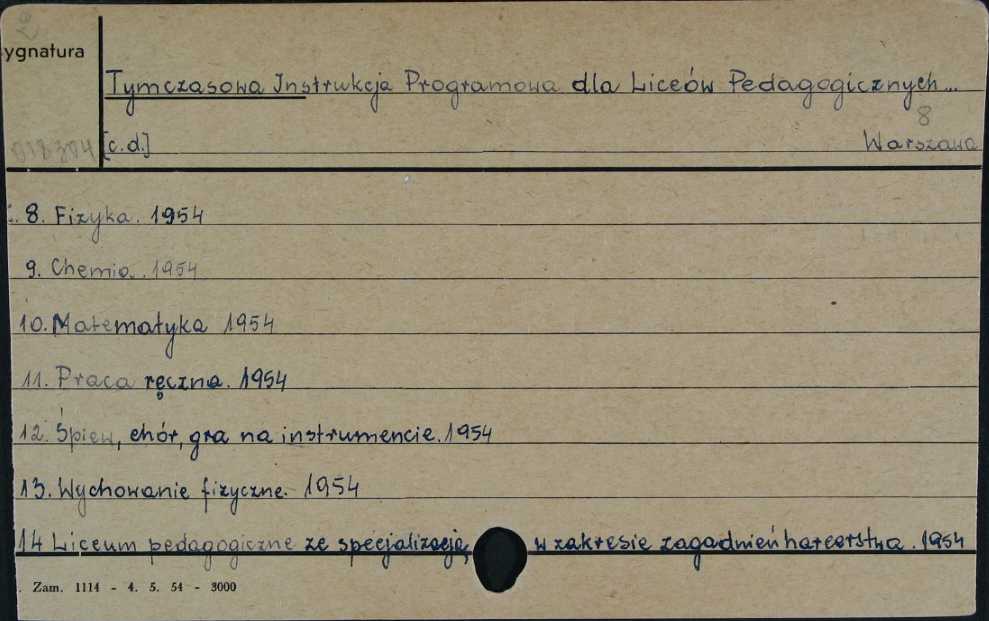 ygnatura
Tymczasowa Instrukcja Programowa dla Liceów Pedagogicznych...
8
018304 [c.d.] Warszawa
8. Fizyka. 1954
9. Chemia. 1954
10. Matematyka 1954
11. Praca ręczna. 1954
12. Śpiew, chór, gra na instrumencie. 1954
13. Wychowanie fizyczne. 1954
14 Liceum pedagogiczne ze specjalizacją w zakresie zagadnień harcerstwa. 1954
Zam. 1114 - 4. 5. 54 - 3000